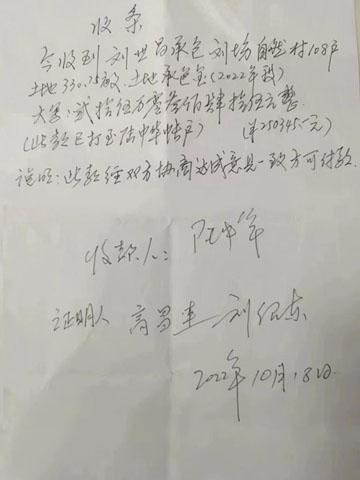 收条
今收到刘世昌承包刘坊自然村108户
土地330.25亩.土地承包金(2022年秋)
大写:贰拾伍万零叁佰肆拾伍元整
(此款已打至陆中华帐户) (¥250345元)
说明:此款经双方协商达成意见一致方可付款
收款人:陆中华
证明人 高昌 刘
2022年10月18日